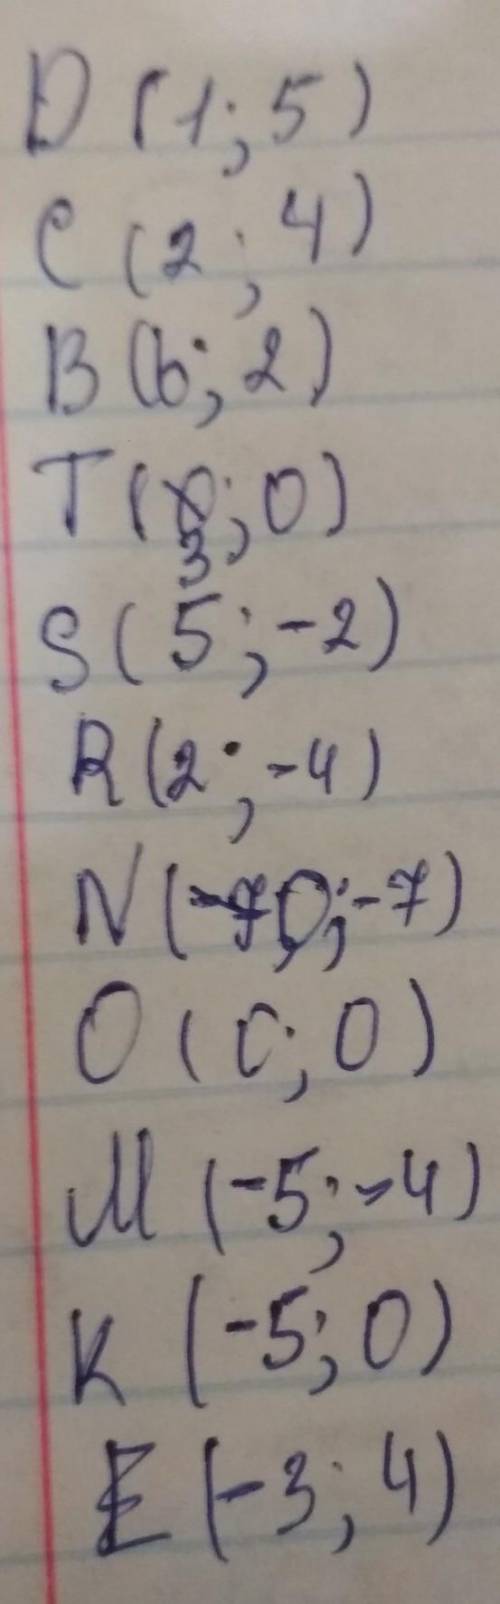 D (1; 5)
C (2; 4)
B (6; 2)
T (3; 0)
S (5; -2)
R (2; -4)
N (0; -7)
O (0; 0)
M (-5; -4)
K (-5; 0)
E (-3; 4)